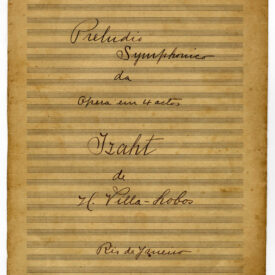 Preludio
Symphonico
da
Opera em 4 actos
Izaht
de
H. Villa-Lobos
Rio de Janeiro